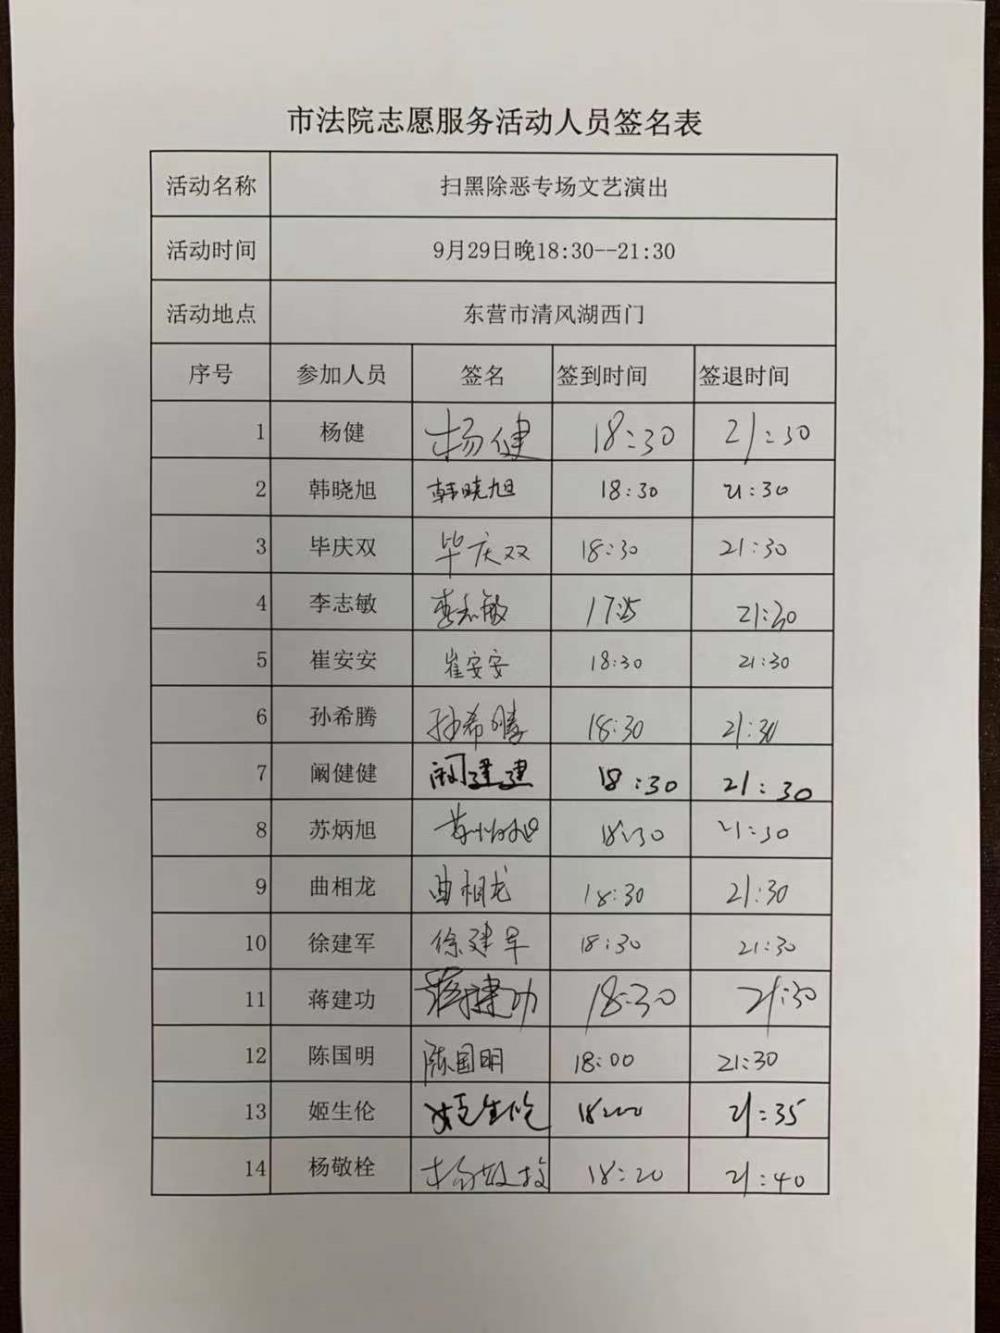 市法院志愿服务活动人员签名表
活动名称 扫黑除恶专场文艺演出
活动时间 9月29日晚18:30--21:30
活动地点 东营市清风湖西门
序号 参加人员 签名 签到时间 签退时间
1 杨健 杨健 18:30 21:30
2 韩晓旭 韩晓旭 18:30 21:30
3 毕庆双 毕庆双 18:30 21:30
4 李志敏 李志敏 21:30
5 崔安安 崔安安 18:30 21:30
6 孙希腾 孙希腾 18:30 21:30
7 阚健健 18:30 21:30
8 苏炳旭 苏炳旭 18:30 21:30
9 曲相龙 曲相龙 18:30 21:30
10 徐建军 徐建军 18:30 21:30
11 蒋建功 蒋建功 18:30 21:30
12 陈国明 陈国明 18:00 21:30
13 姬生伦 姬生伦 18:00 21:35
14 杨敬栓 杨敬栓 18:20 21:40